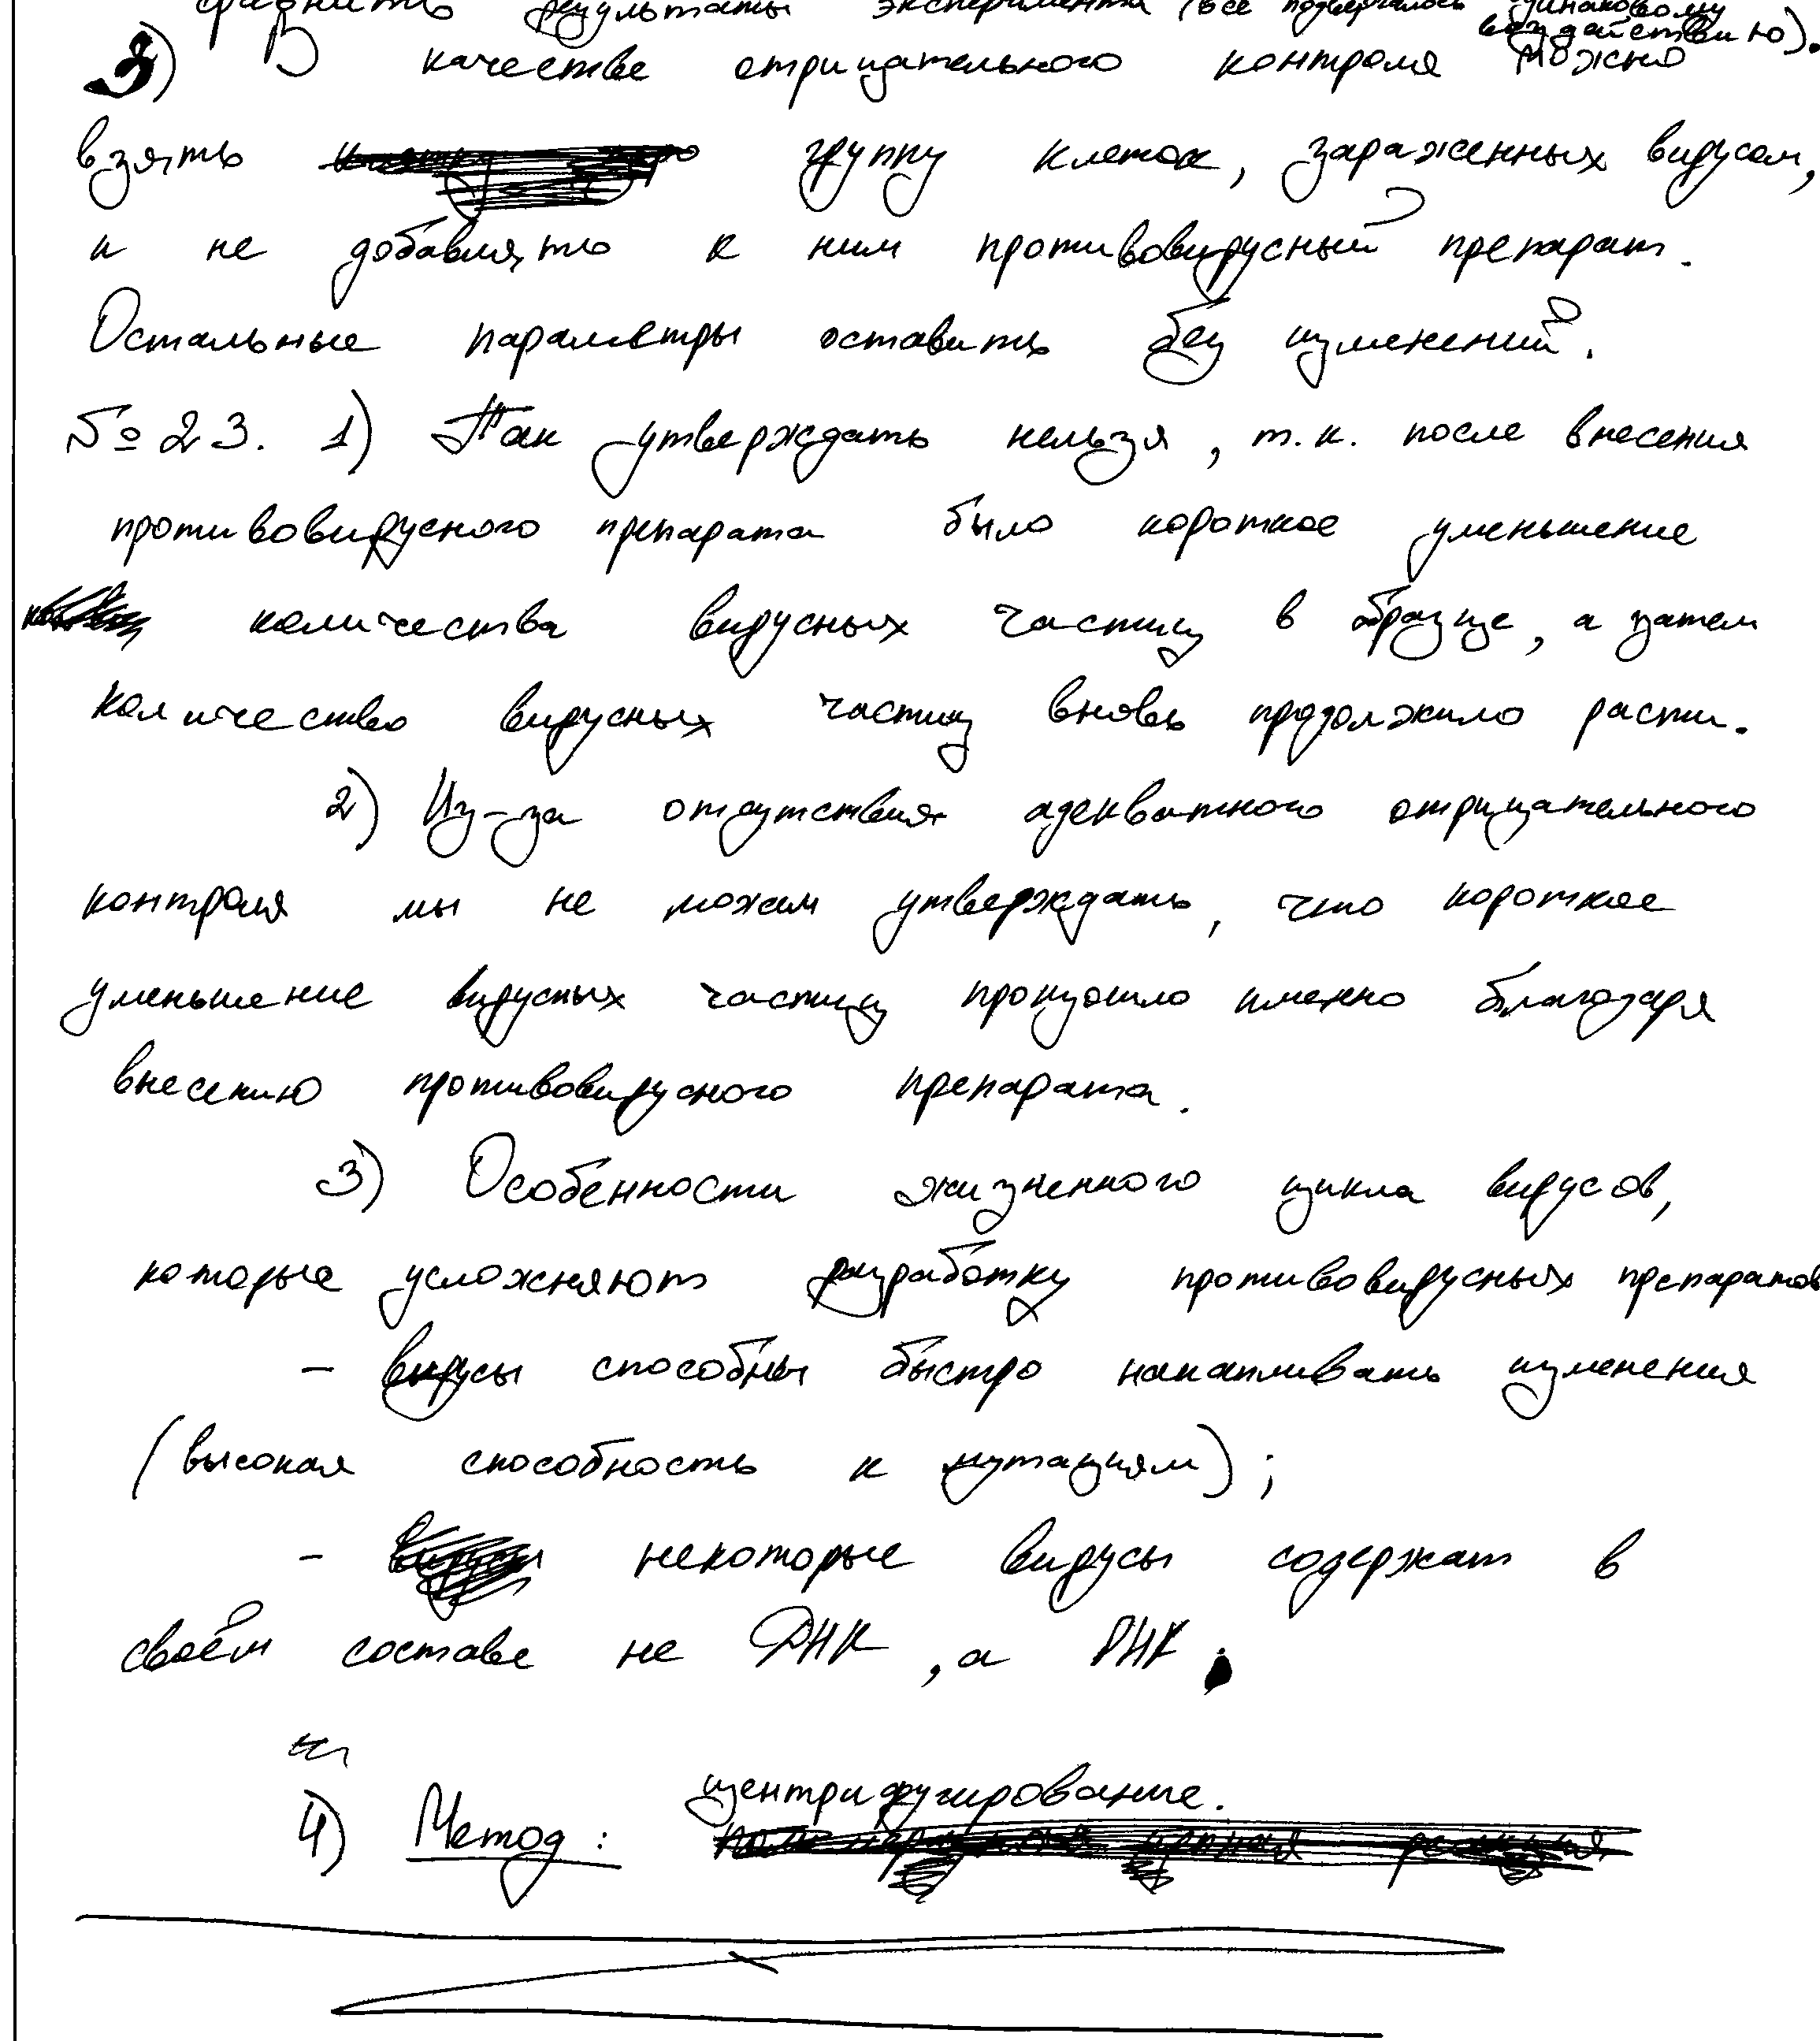 сравнить результаты эксперимента (все подвергалось одинаковому
воздействию).
3) В качестве отрицательного контроля можно
взять группу клеток, зараженных вирусом,
и не добавлять к ним противовирусный препарат.
Остальные параметры оставить без изменений.
№23. 1) Так утверждать нельзя, т.к. после внесения
противовирусного препарата было короткое уменьшение
количества вирусных частиц в образце, а затем
количество вирусных частиц вновь продолжило расти.
2) Из-за отсутствия адекватного отрицательного
контроля мы не можем утверждать, что короткое
уменьшение вирусных частиц произошло именно благодаря
внесению противовирусного препарата.
3) Особенности жизненного цикла вирусов,
которые усложняют разработку противовирусных препаратов
- вирусы способны быстро накапливать изменения
(высокая способность к мутациям);
- некоторые вирусы содержат в
своём составе не ДНК, а РНК.
4) Метод: центрифугирование.